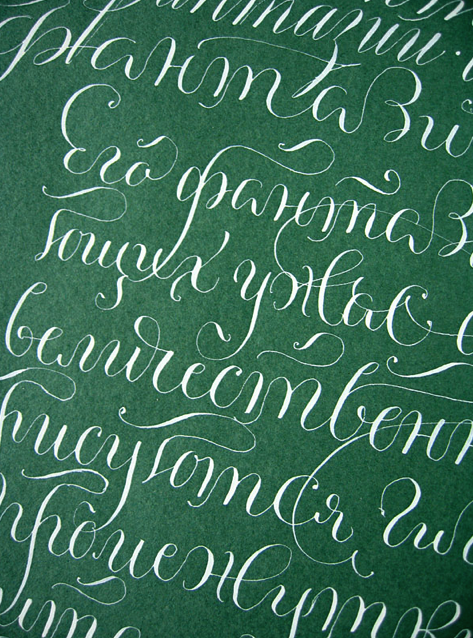 фантазии.
фантази
Его фантаз
ющих ужас
величественн
рисуются
промежутк